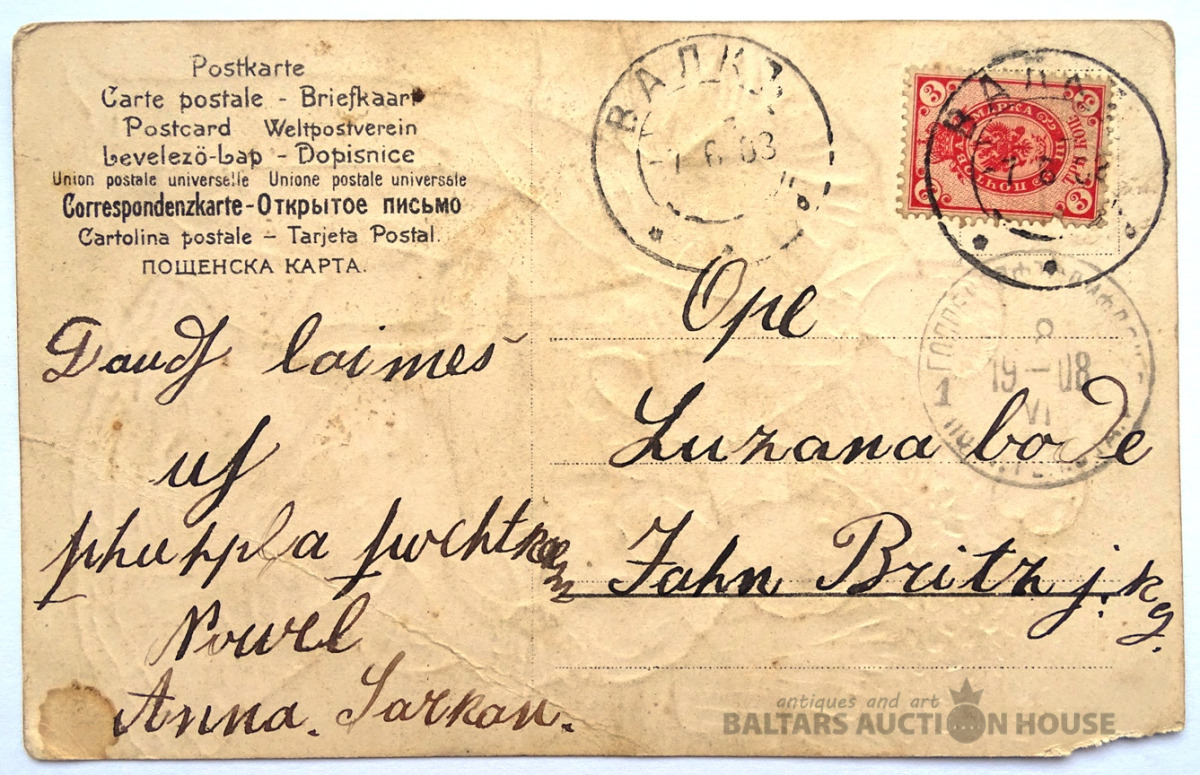 Postkarte
Carte postale - Briefkaart
Postcard Weltpostverein
Levelező-Lap - Dopisnice
Union postale universelle Unione postale universale
Correspondenzkarte - Открытое письмо
Cartolina postale - Tarjeta Postal.
ПОЩЕНСКА КАРТА.
ВАЛКЪ
7 6 08
3
МАРКА
3
ВАЛК
8
19-08
VI
1
Daudſ laimes
uſ
Nowel
Anna. Sarkan.
Ope
Luzana bode
Jahn Britz j. kg.
antiques and art
BALTARS AUCTION HOUSE